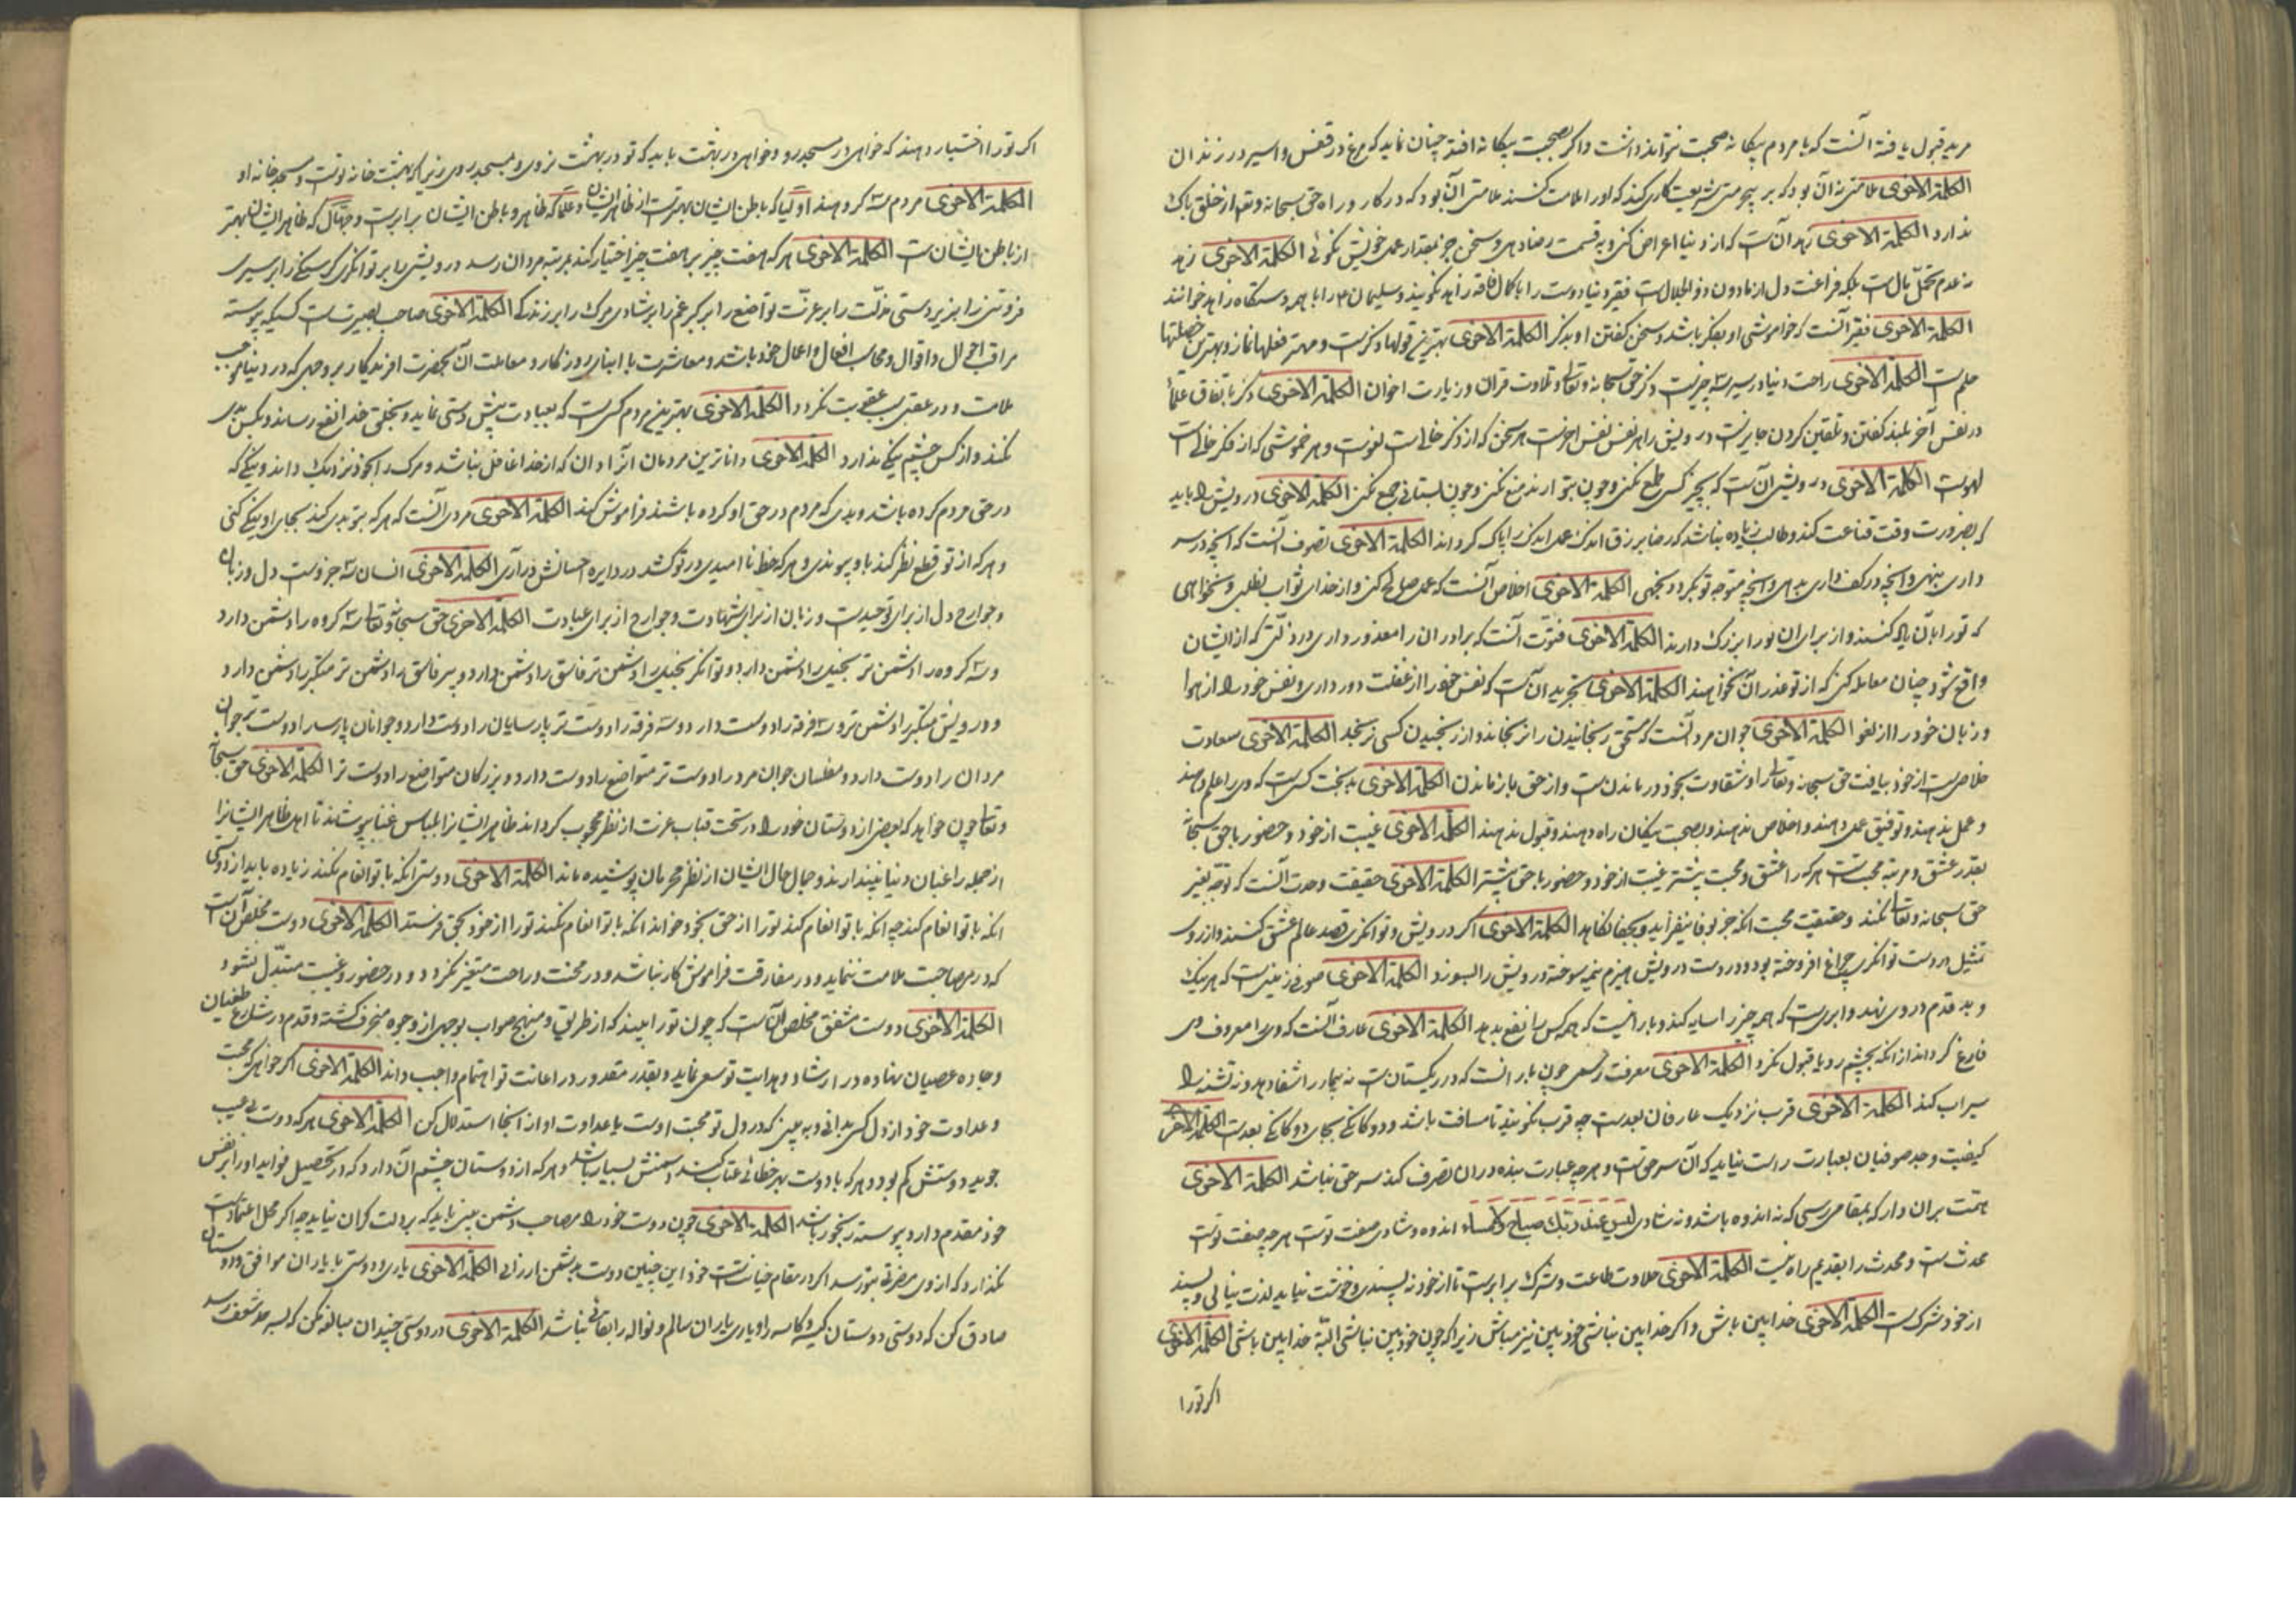 مرید قبول یافته آنست که با مردم بیکانه صحبت نتواند داشت و اکر بصحبت بیکانه افتد چنان نماید که مرغ در قفس و اسیر در زندان
الکلمة الاخری ملامتی نه آن بود که بر بیحرمتی شریعت کاری کند که او را ملامت کنند ملامتی آن بود که در کار و راه حق سبحانه وتعا از خلق باک
ندارد الکلمة الاخری زهد آنست که از دنیا اعراض کنی و به قسمت رضا دهی و سخن جز بمقدار عمل خویش نکوئی الکلمة الاخری زهد
نه عدم تحمل بال است بلکه فراغت دل از مادون ذو الجلال است فقیر دنیا دوست را با کمال فاقه زاهد نکویند و سلیمان را با همه دستکاه زاهد خوانند
الکلمة الاخری فقیر آنست که خاموشی او بفکر باشد و سخن کفتن او بذکر الکلمة الاخری بهترین قولها ذکرست و مهتر فعلها نماز و بهترین خصلتها
حلم است الکلمة الاخری راحت دنیا در سه چیزست ذکر حق سبحانه وتعالی و تلاوت قران و زیارت اخوان الکلمة الاخری ذکر باتفاق علما
در نفس آخر بلند کفتن و تلقین کردن جایزست درویش را هر نفس نفس اخرست هر سخن که از ذکر خالی است لغوست و هر خموشی که از فکر خالی است
لهوست الکلمة الاخری درویشی آنست که بچیز کسی طمع نکنی و چون بتو ارند منع نکنی و چون بستانی جمع نکنی الکلمة الاخری درویش را باید
که بضرورت وقت قناعت کند و طالب زیاده نباشد که رضا برزق اندک عمل اندک را پاک کرداند الکلمة الاخری تصوف آنست که آنچه در سر
داری بنهی و آنچه در کف داری بدهی و آنچه متوجه تو بکردد نجهی الکلمة الاخری اخلاص آنست که عمل صالح کنی و از خدای ثواب نطلبی و نخواهی
که تو را بآن یاد کنند و از برای ان تو را بزرک دارند الکلمة الاخری فتوت آنست که برادران را معذور داری در زلتی که از ایشان
واقع شود و چنان معامله کنی که از تو عذر آن نخواهند الکلمة الاخری تجرید آن است که نفس خود را از غفلت دور داری و نفس خود را از هوا
و زبان خود را از لغو الکلمة الاخری جوان مرد آنست که مستحق رنجانیدن را نرنجاند و از رنجیدن کسی نرنجد الکلمة الاخری سعادت
خلاصیست از خود بیافت حق سبحانه وتعالی و شقاوت بخود در ماندن است و از حق باز ماندن الکلمة الاخری بدبخت کسیست که وی را علم دهند
و عمل ندهند و توفیق عمل دهند و اخلاص ندهند و بصحبت نیکان راه دهند و قبول ندهند الکلمة الاخری غیبت از خود و حضور با حق سبحانه
بقدر عشق و مرتبه محبت است هر که را عشق و محبت بیشتر غیبت از خود و حضور با حق بیشتر الکلمة الاخری حقیقت وحدت آنست که توجه بغیر
حق سبحانه وتعالی نکند و حقیقت محبت انکه جز بوفا نیفزاید و بجفا نکاهد الکلمة الاخری اکر درویش و توانکری قصد عالم عشق کنند و از روی
تمثیل در دست توانکری چراغ افروخته بود و در دست درویش هیزم نیم سوخته درویش را بسوزد الکلمة الاخری صوفی زمینی است که هر نیک
و بد قدم در وی نهند و ابری ست که همه چیز را سایه کند و بارانیست که همه کس را نفع بدهد الکلمة الاخری عارف آنست که وی را معروف وی
فارغ کرداند از انکه بچشم رد یا قبول نکرد الکلمة الاخری معرفت رسمی چون بارانست که در ریکستان ست نه بیمار را شفا دهد و نه تشنه را
سیراب کند الکلمة الاخری قرب نزدیک عارفان بعدست چه قرب نکویند تا مسافت نباشد و دوکانکی بجای دوکانکی بعدست الکلمة الاخری
کیفیت وجد صوفیان بعبارت راست نیاید که آن سر حق است و هر چه عبارت بنده در ان تصرف کند سر حق نباشد الکلمة الاخری
همت بران دار که بمقامی رسی که نه اندوه باشد و نه شادی لیس عند ربک صباح ولا مساء اندوه و شادی صفت توست هر چه صفت توست
محدث ست و محدث را بقدیم راه نیست الکلمة الاخری حلاوت طاعت و شرک برابرست تا از خود نپسندی و خوشت نیاید لذت نیابی و پسند
از خود شرک ست الکلمة الاخری خدا بین باش و اکر خدا بین نباشی خود بین نیز مباش زیرا که چون خود بین نباشی البته خدا بین باشی الکلمة الاخری
اکر تو را
اکر تو را اختیار دهند که خواهی در مسجد رو و خواهی در بهشت باید که تو در بهشت نروی و بمسجد روی زیرا که بهشت خانه توست و مسجد خانه او
الکلمة الاخری مردم سه کروهند اولیا که باطن ایشان بهترست از ظاهر ایشان و علما که ظاهر و باطن ایشان برابرست و جهال که ظاهر ایشان بهتر
از باطن ایشان ست الکلمة الاخری هر که هفت چیز بر هفت چیز اختیار کند بمرتبه مردان رسد درویشی را بر توانکری کرسنکی را بر سیری
فروتنی را بر زبردستی مذلت را بر عزت تواضع را بر کبر غم را بر شادی مرک را بر زندکی الکلمة الاخری صاحب بصیرت است کسیکه پیوسته
مراقب احوال و اقوال و محاسب افعال و اعمال خود باشد و معاشرت با ابنای روزکار و معاملت آن بحضرت افریدکار بر وجهی که در دنیا موجب
ملامت و در عقبی سبب عقوبت نکردد الکلمة الاخری بهترین مردم کسیست که بعبادت پیش دستی نماید و بخلق خدا نفع رساند و بکس بدی
نکند و از کس چشم نیکی ندارد الکلمة الاخری داناترین مردمان انرا دان که از خدا غافل نباشد و مرک را بخود نزدیک داند و نیکی که
در حق مردم کرده باشد و بدی که مردم در حق او کرده باشند فراموش کند الکلمة الاخری مردی آنست که هر که بتو بدی کند بجای او نیکی کنی
و هر که از تو قطع نظر کند با او پیوندی و هر که خط ناامیدی در تو کشد در دایره احسانش درآری الکلمة الاخری انسان سه جزوست دل و زبان
و جوارح دل از برای توحیدست و زبان از برای شهادت و جوارح از برای عبادت الکلمة الاخری حق سبحانه وتعالی سه کروه را دشمن دارد
و سه کروه را دشمن تر بخیل را دشمن دارد و توانکر بخیل را دشمن تر فاسق را دشمن دارد و پیر فاسق را دشمن تر متکبر را دشمن دارد
و درویش متکبر را دشمن تر و سه فرقه را دوست دارد و سه فرقه را دوست تر پارسایان را دوست دارد و جوانان پارسا را دوست تر جوان
مردان را دوست دارد و مفلسان جوان مرد را دوست تر متواضع را دوست دارد و بزرکان متواضع را دوست تر الکلمة الاخری حق سبحانه
وتعالی چون خواهد که بعضی از دوستان خود را در تحت قباب عزت از نظر محجوب کرداند ظاهر ایشانرا بلباس غنا بپوشاند تا اهل ظاهر ایشانرا
از جمله راغبان دنیا پندارند و جمال حال ایشان از نظر محرمان پوشیده ماند الکلمة الاخری دوستی انکه با تو انعام نکند زیاده باید از دوستی
انکه با تو انعام کند چه انکه با تو انعام کند تو را از حق بخود خواند انکه با تو انعام نکند تو را از خود بحق فرستد الکلمة الاخری دوست مخلص آنست
که در مصاحبت ملامت ننماید و در مفارقت فراموش کار نباشد و در محنت و راحت متغیر نکردد و در حضور و غیبت متبدل نشود
الکلمة الاخری دوست مشفق مخلص آن است که چون تو را بیند که از طریق و منهج صواب بوجهی از وجوه منحرف کشته و قدم در شارع طغیان
و جاده عصیان نهاده در ارشاد و هدایت تو سعی نماید و بقدر مقدور در اعانت تو اهتمام واجب داند الکلمة الاخری اکر خواهی که محبت
و عداوت خود از دل کس بدانی و به بین که در دل تو محبت اوست یا عداوت او از انجا استدلال کن الکلمة الاخری هر که دوست بی عیب
جوید دوستش کم بود و هر که با دوست بهر خطائی عتاب کند دشمنش بسیار باشد و هر که از دوستان چشم آن دارد که در تحصیل فواید او را بر نفس
خود مقدم دارد پیوسته رنجور باشد الکلمة الاخری چون دوست خود را مصاحب دشمن بینی باید که بر دلت کران نیاید چه اکر محل اعتمادست
نکذارد که از وی مضرتی بتو رسد اکر در مقام خیانت است خود این چنین دوست بدشمن ارزانی الکلمة الاخری یاری و دوستی با یاران موافق و دوستان
صادق کن که دوستی دوستان کیسه و کاسه را و یاری یاران سالم و نواله را بقائی نباشد الکلمة الاخری در دوستی چندان مبالغه مکن که بسر حد شعف رسد